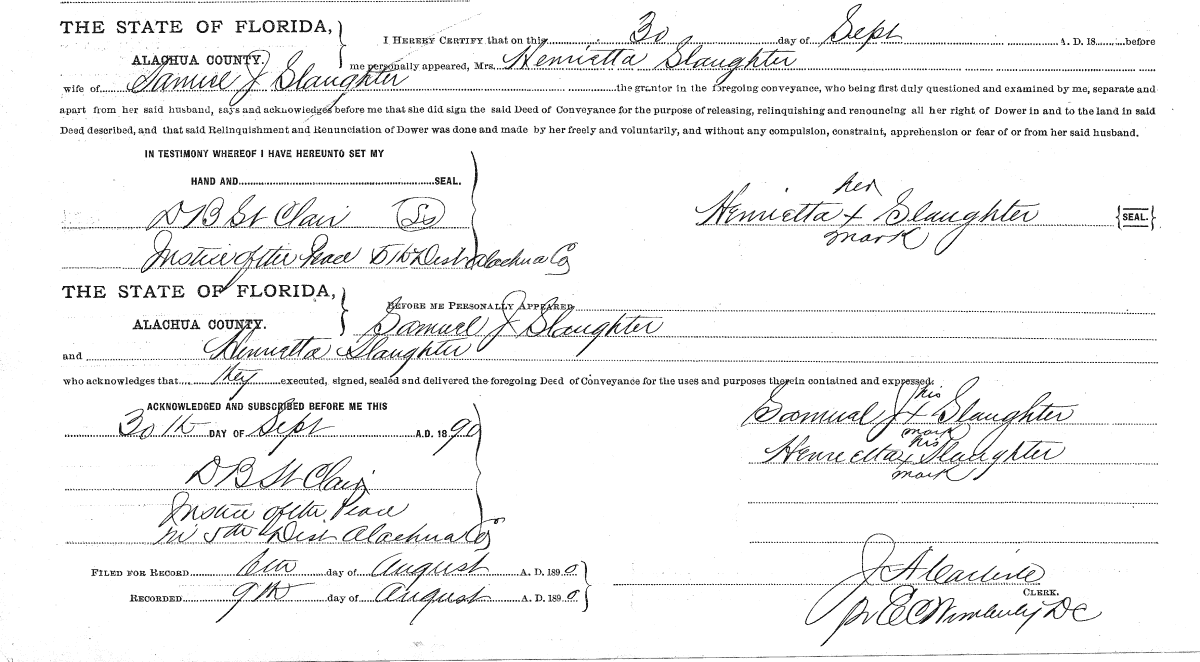 THE STATE OF FLORIDA,
ALACHUA COUNTY.
I HEREBY CERTIFY that on this 30 day of Sept A. D. 18 before
me personally appeared, Mrs. Henrietta Slaughter
wife of Samuel J Slaughter the grantor in the foregoing conveyance, who being first duly questioned and examined by me, separate and
apart from her said husband, says and acknowledges before me that she did sign the said Deed of Conveyance for the purpose of releasing, relinquishing and renouncing all her right of Dower in and to the land in said
Deed described, and that said Relinquishment and Renunciation of Dower was done and made by her freely and voluntarily, and without any compulsion, constraint, apprehension or fear of or from her said husband.
IN TESTIMONY WHEREOF I HAVE HEREUNTO SET MY
HAND AND SEAL.
D B St Clair Ls
Justice of the Peace 5th Dist Alachua Co
her
Henrietta X Slaughter {SEAL.}
mark
THE STATE OF FLORIDA,
ALACHUA COUNTY.
BEFORE ME PERSONALLY APPEARED
Samuel J Slaughter
and Henrietta Slaughter
who acknowledges that they executed, signed, sealed and delivered the foregoing Deed of Conveyance for the uses and purposes therein contained and expressed.
ACKNOWLEDGED AND SUBSCRIBED BEFORE ME THIS
30th DAY OF Sept A.D. 1890
D B St Clair
Justice of the Peace
in 5th Dist Alachua Co
his
Samual J X Slaughter
mark
his
Henrietta X Slaughter
mark
FILED FOR RECORD 6th day of August A. D. 1890
RECORDED 9th day of August A. D. 1890
J A Carlisle
CLERK.
pr E C Wimberly DC